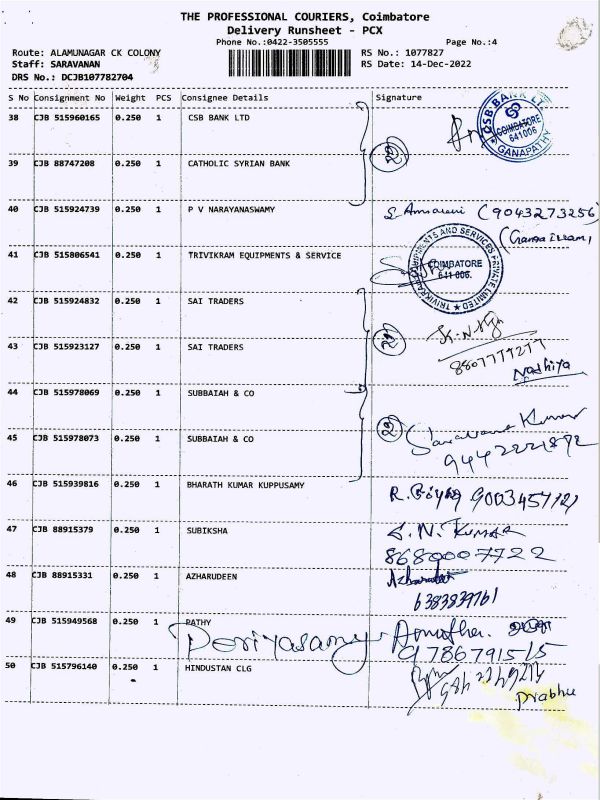 THE PROFESSIONAL COURIERS, Coimbatore
Delivery Runsheet - PCX
Phone No.:0422-3505555 Page No.:4
Route: ALAMUNAGAR CK COLONY RS No.: 1077827
Staff: SARAVANAN RS Date: 14-Dec-2022
DRS No.: DCJB107782704
S No Consignment No Weight PCS Consignee Details Signature
38 CJB 515960165 0.250 1 CSB BANK LTD
CSB BANK LT
COIMBATORE
641006
GANAPATHY
39 CJB 88747208 0.250 1 CATHOLIC SYRIAN BANK
40 CJB 515924739 0.250 1 P V NARAYANASWAMY (9043273256)
41 CJB 515806541 0.250 1 TRIVIKRAM EQUIPMENTS & SERVICE
TRIVIKRAM EQUIPMENTS AND SERVICES PRIVATE LIMITED
COIMBATORE
641 006.
42 CJB 515924832 0.250 1 SAI TRADERS
43 CJB 515923127 0.250 1 SAI TRADERS
8807777277
Nadhiya
44 CJB 515978069 0.250 1 SUBBAIAH & CO
Saravana Kumar
45 CJB 515978073 0.250 1 SUBBAIAH & CO
46 CJB 515939816 0.250 1 BHARATH KUMAR KUPPUSAMY
R. Priya 9003457121
47 CJB 88915379 0.250 1 SUBIKSHA S.N. KUMAR
8680007722
48 CJB 88915331 0.250 1 AZHARUDEEN Azharudeen
6383839761
49 CJB 515949568 0.250 1 PATHY
Periyasamy Amutha.
9786791515
50 CJB 515796140 0.250 1 HINDUSTAN CLG
Prabhu